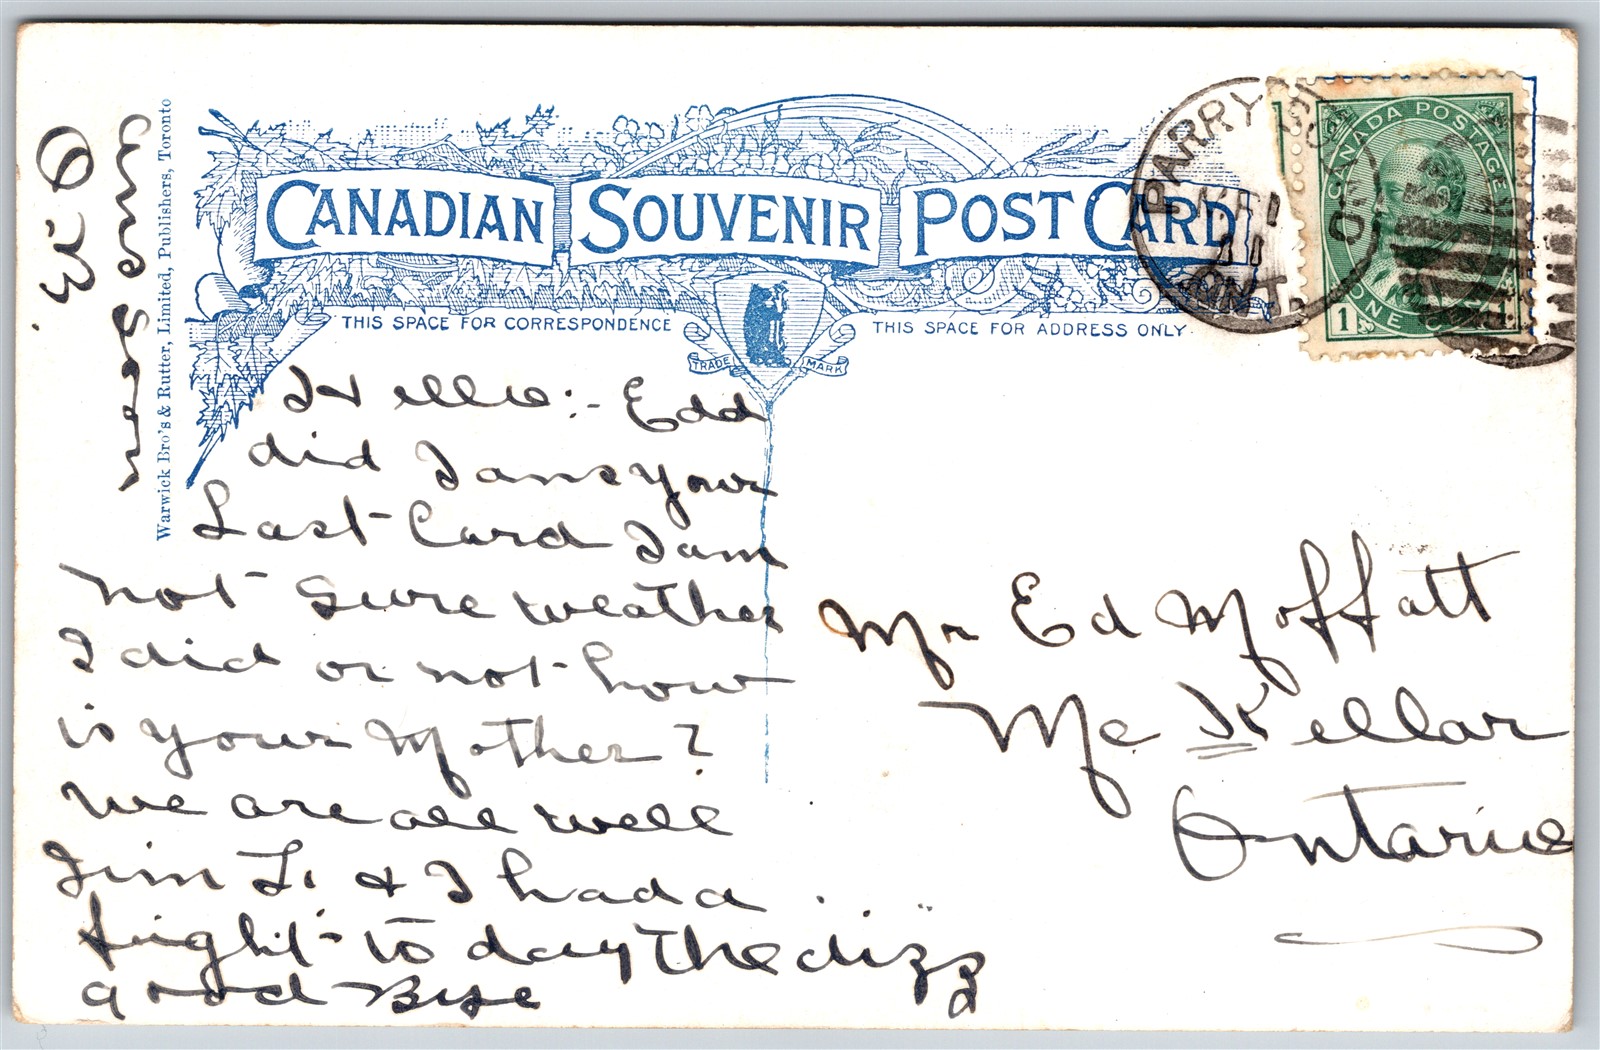 CANADIAN SOUVENIR POST CARD
THIS SPACE FOR CORRESPONDENCE
THIS SPACE FOR ADDRESS ONLY
TRADE MARK
Warwick Bro's & Rutter, Limited, Publishers, Toronto
PARRY SOUND
11
ONT.
CANADA POSTAGE
ONE CENT
1
Hello:- Edd
did I ans your
Last Card I am
not Sure weather
I did or not how
is your Mother?
we are all well
Jim L. & I had a
fright to day the dizzy
good Bye
Mr Ed Moffatt
Mc Kellar
Ontario
ans soon